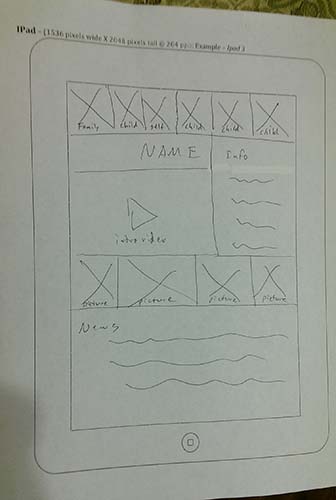 IPad - (1536 pixels wide X 2048 pixels tall @ 264 ppi) Example - Ipad 3
Family child child child child
NAME Info
intro video
picture picture picture picture
News